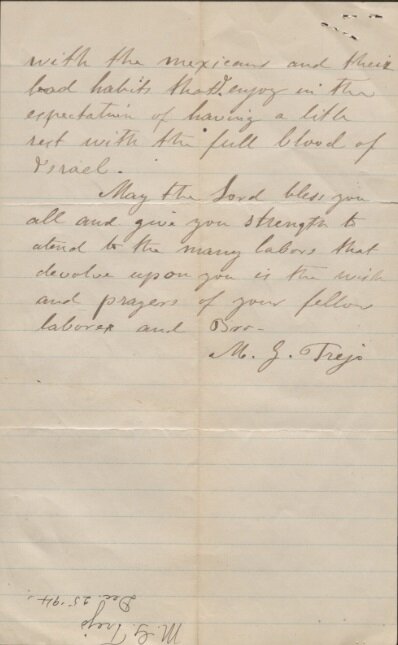 with the mexicans and their
bad habits that I enjoy in the
expectation of having a litle
rest with the full blood of
Israel.
May the Lord bless you
all and give you strength to
atend to the many labors that
devolve upon you is the wish
and prayers of your fellow
laborer and Bro-
M. G. Trejo
M. G. Trejo
Dec. 25-94.